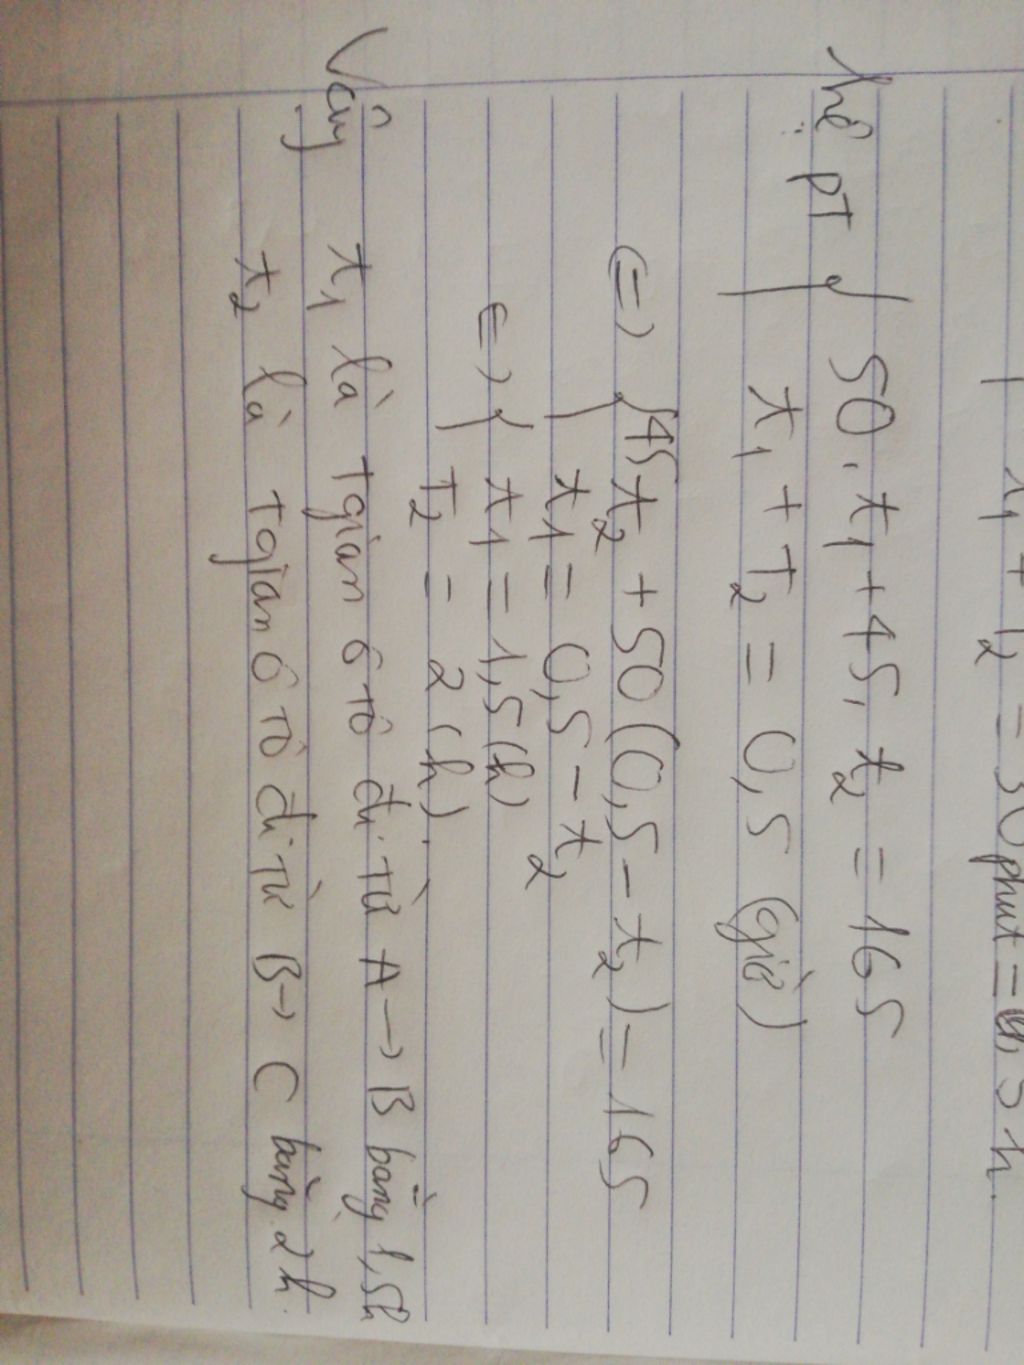 x₁ + T₂ = 30 phút = 0,5 h.
hệ PT { 50.x₁ + 45.x₂ = 165
x₁ + T₂ = 0,5 (giờ)
<=> { 45x₂ + 50(0,5 - x₂) = 165
x₁ = 0,5 - x₂
<=> { x₁ = 1,5 (h)
T₂ = 2 (h).
Vậy x₁ là tgian ô tô đi từ A → B bằng 1,5h
x₂ là tgian ô tô đi từ B → C bằng 2h.